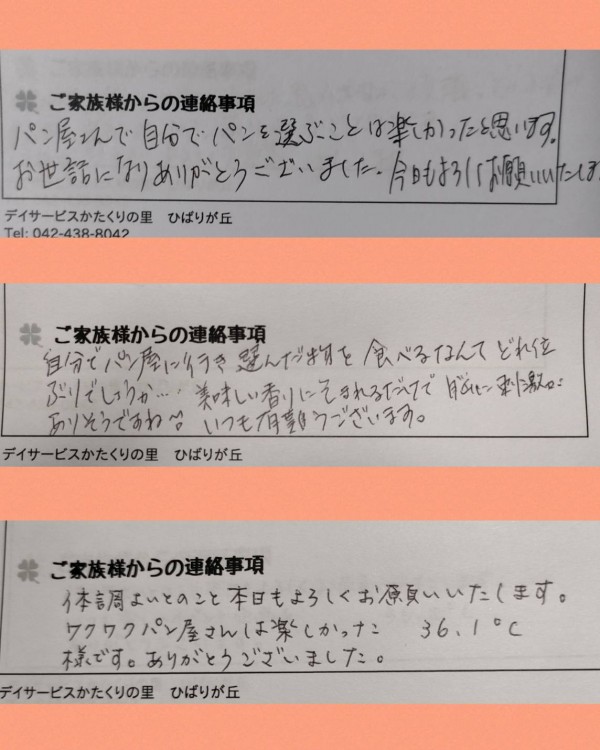 ご家族様からの連絡事項
パン屋さんで自分でパンを選ぶことは楽しかったと思います。
お世話になりありがとうございました。今日もよろしくお願いいたしま
デイサービスかたくりの里 ひばりが丘
Tel: 042-438-8042
ご家族様からの連絡事項
自分でパン屋に行き選んだ物を食べるなんてどれ位
ぶりでしょうか… 美味しい香りにそそられるだけで 脳に刺激が
ありそうですね いつも有難うございます。
デイサービスかたくりの里 ひばりが丘
ご家族様からの連絡事項
体調よいとのこと本日もよろしくお願いいたします。
ワクワクパン屋さんは楽しかった 36.1℃
様です。ありがとうございました。
デイサービスかたくりの里 ひばりが丘